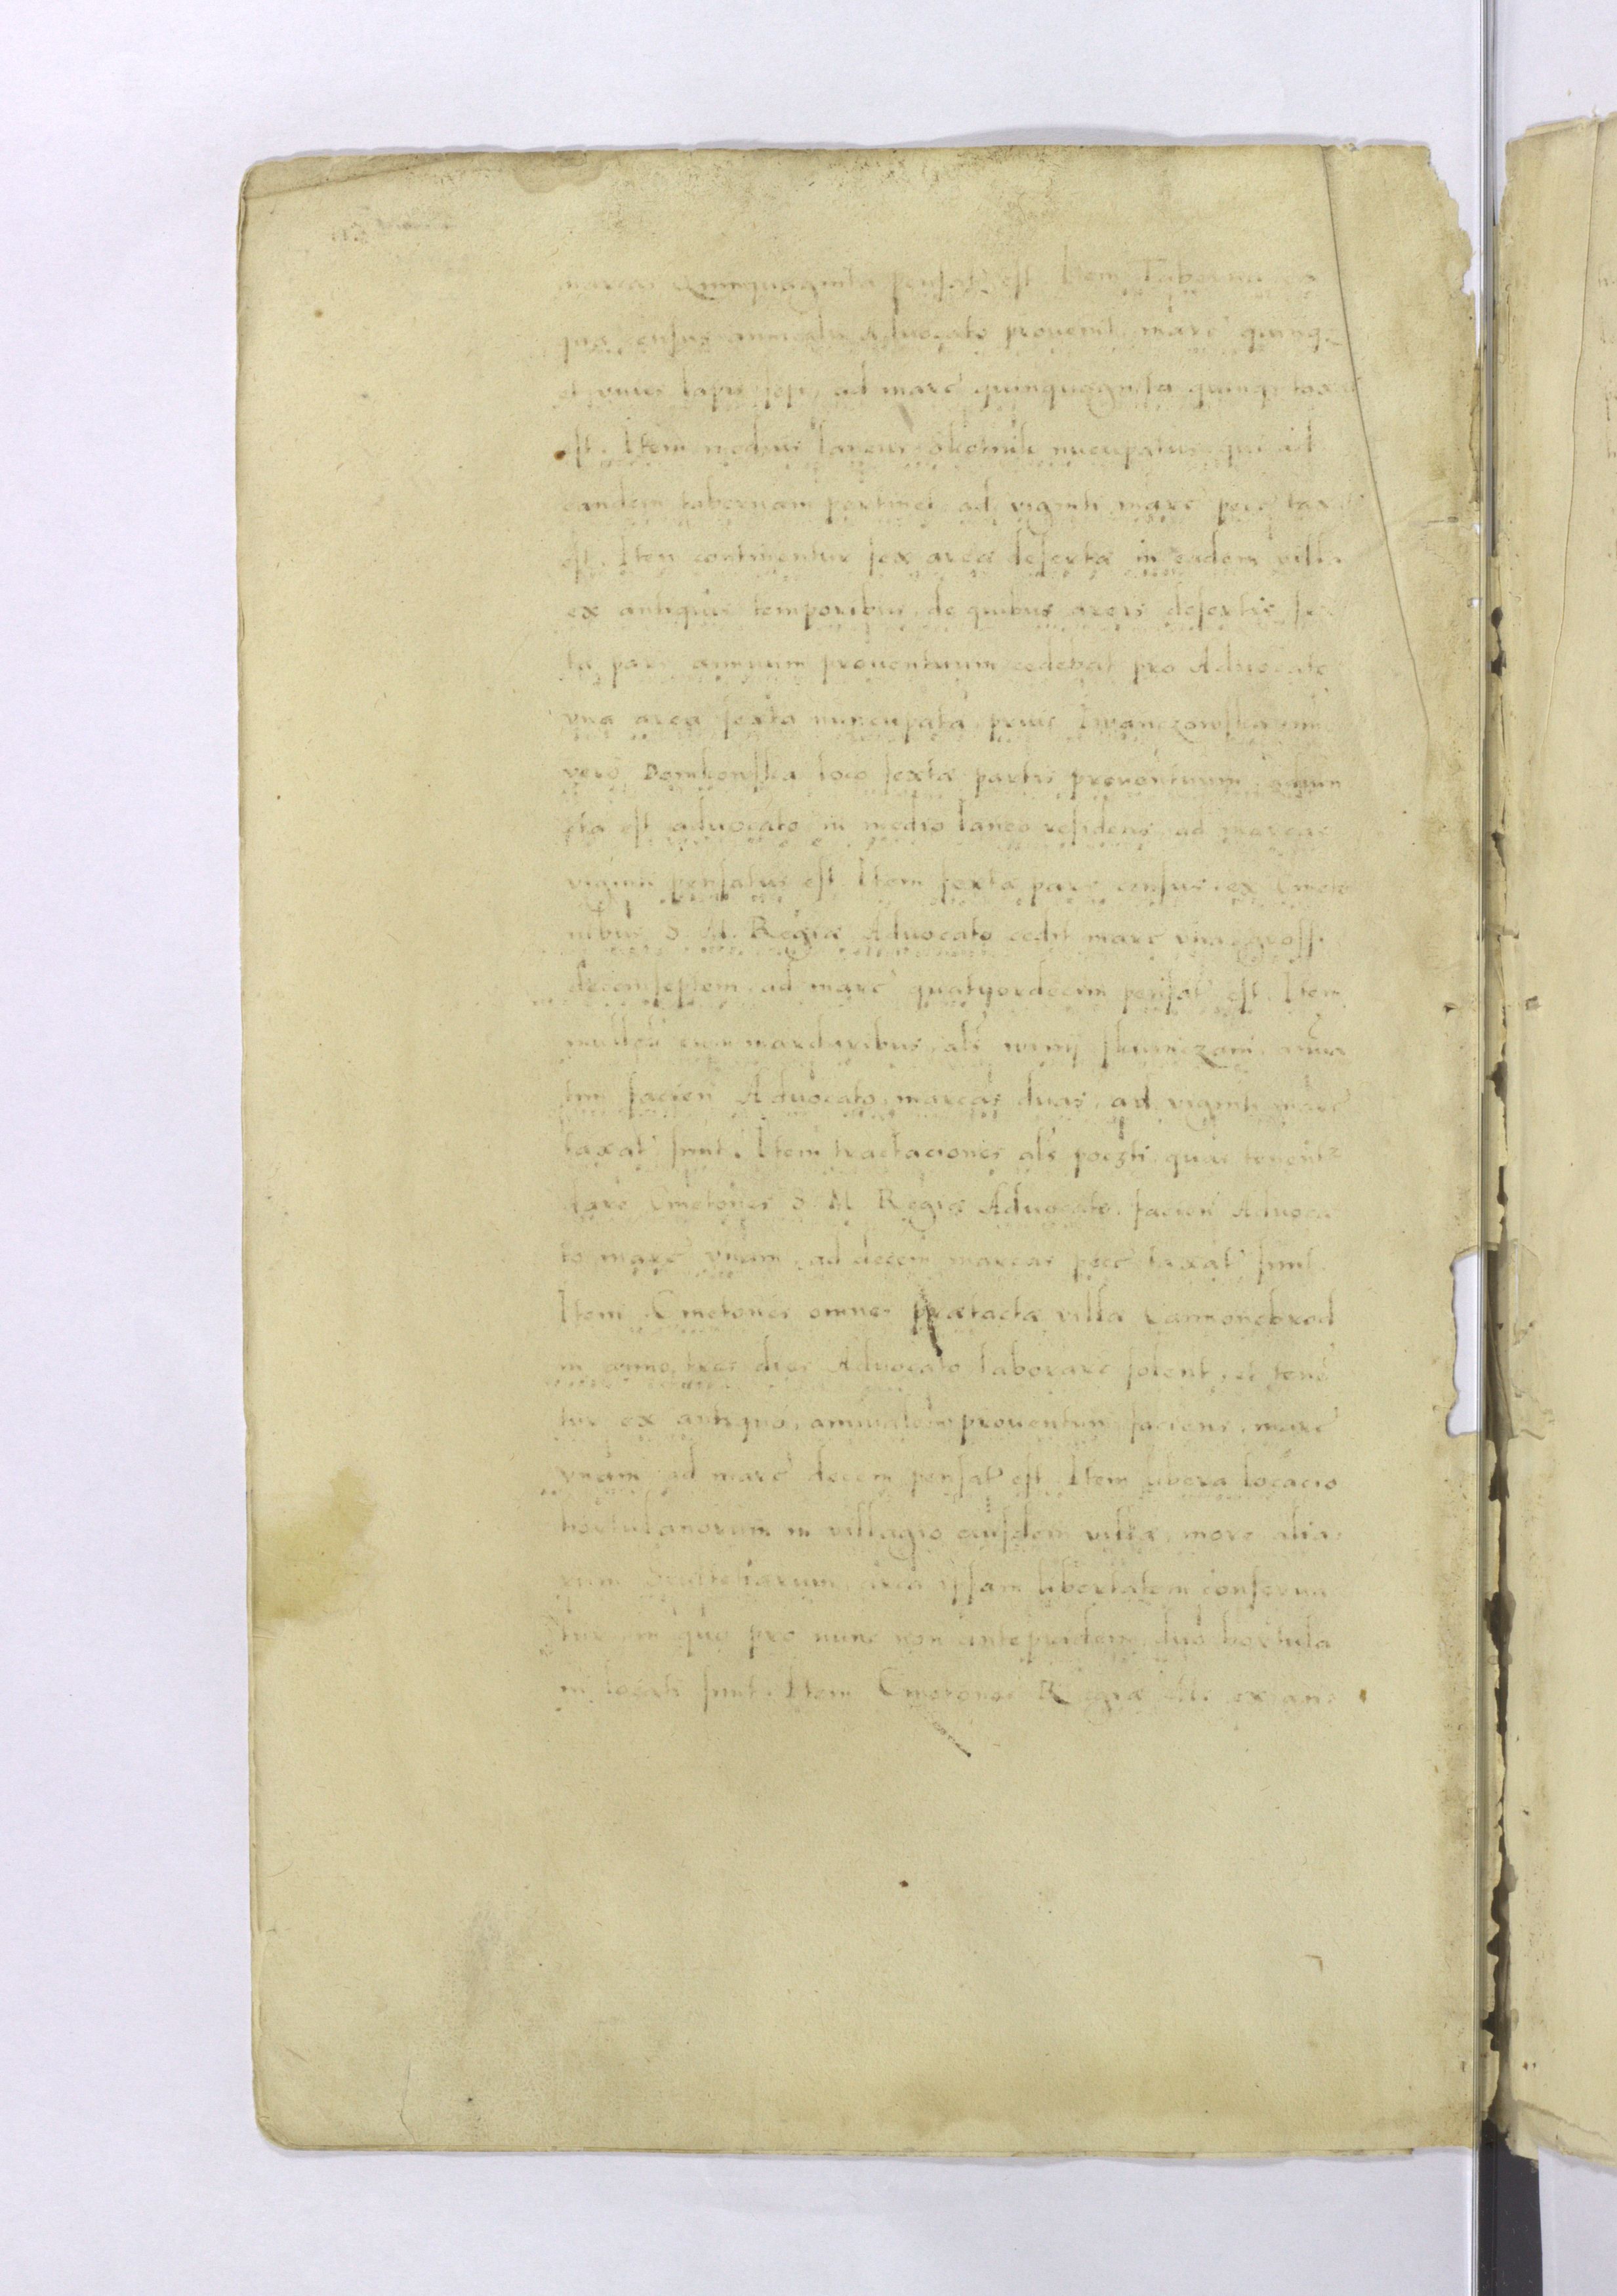 marcas Quinquaginta pensat est. Item Taberna ex
qua census annualis Advocato provenit marc quinq
et unus lapis sepi, ad marc quinquaginta quinq taxa
est. Item medius laneus nucupatus qui ad
eandem tabernam pertinet ad viginti marc pecc tax
est. Item continentur sex areæ desertæ in eadem villa
ex antiquis temporibus, de quibus areis desertis sex
ta pars annuum proventuum cedebat pro Advocato
una area sexta nuncupata prius Iwanczowska
vero Domkowska loco sextæ partis proventuum adiun
cta est advocato in medio laneo residens ad marcas
viginti pensatus est. Item sexta pars census ex Cmeto
nibus S. M. Regiæ Advocato cedit marc una gross.
decemseptem, ad marc quatuordecim pensat est. Item
cum marduribus, als annua
tim facien Advocato, marcas duas, ad viginti marc
taxat sunt. Item tractaciones als poczti quas tenent
dare Cmetones S. M. Regiæ Advocato, facien Advoca
to marc unam, ad decem marcas pecc taxat sunt
Item Cmetones omnes prætactæ villæ
in anno tres dies Advocato laborare solent, et tene
tur ex antiquo, annualem proventum faciens, marc
unam ad marc decem pensat est Item libera locacio
hortulanorum in villagio eiusdem villæ, more alia
rum Scultetiarum, circa ipsam libertatem conserva
tur in quo pro nunc non antepridem, duo hortula
ni locati sunt. Item Cmetones Regiæ M. ex an